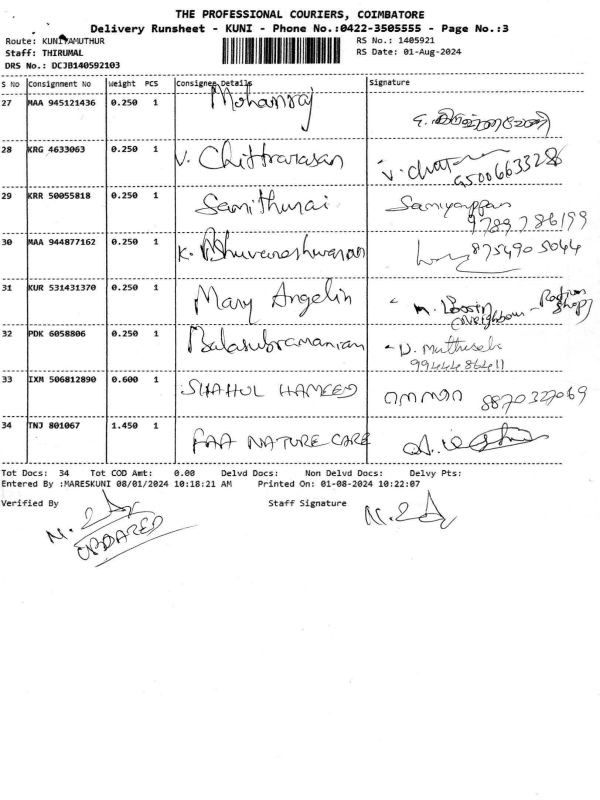 THE PROFESSIONAL COURIERS, COIMBATORE
Delivery Runsheet - KUNI - Phone No.:0422-3505555 - Page No.:3
Route: KUNIYAMUTHUR RS No.: 1405921
Staff: THIRUMAL RS Date: 01-Aug-2024
DRS No.: DCJB140592103
S No Consignment No Weight PCS Consignee Details Signature
27 MAA 945121436 0.250 1 Mohanraj
28 KRG 4633063 0.250 1 V. Chittrarasan
9500663328
29 KRR 50055818 0.250 1 Samithurai Samiyappan
9789786199
30 MAA 944877162 0.250 1 K. Bhuvaneshwaran 8754905044
31 KUR 531431370 0.250 1 Mary Angelin
Neighbour - Ration Shop
32 PDK 6058806 0.250 1 Balasubramanian D. Muthuselvi
9944486411
33 IXM 506812890 0.600 1 SHAHUL HAMEED 8870327069
34 TNJ 801067 1.450 1 FAA NATURE CARE
Tot Docs: 34 Tot COD Amt: 0.00 Delvd Docs: Non Delvd Docs: Delvy Pts:
Entered By :MARESKUNI 08/01/2024 10:18:21 AM Printed On: 01-08-2024 10:22:07
Verified By Staff Signature
UPDATED